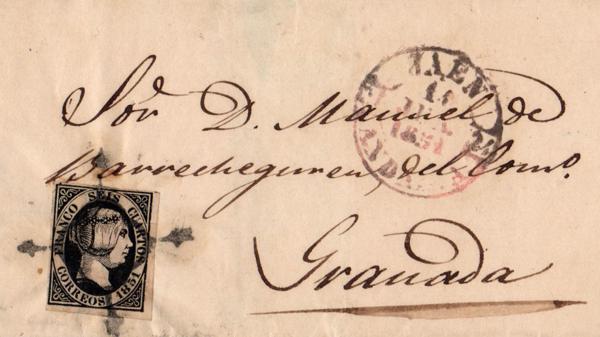 JAEN
1851
Sor. D. Manuel de
Barrecheguren, del Como.
Granada
FRANCO SEIS CUARTOS
CORREOS 1851